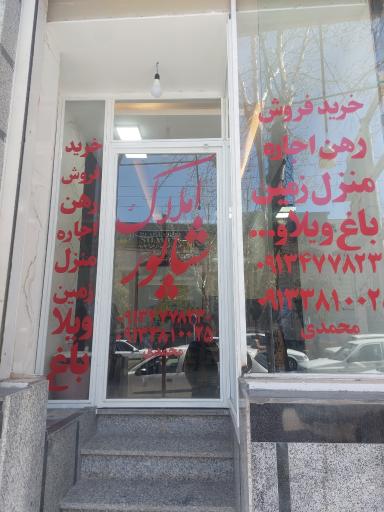 خرید
فروش
رهن
اجاره
منزل
زمین
ویلا
باغ
املاک
شاپور
محمدی
خرید فروش
رهن اجاره
منزل زمین
باغ ویلا و...
۰۹۱۳۴۷۷۸۲۳
۰۹۱۳۳۸۱۰۰۲
محمدی